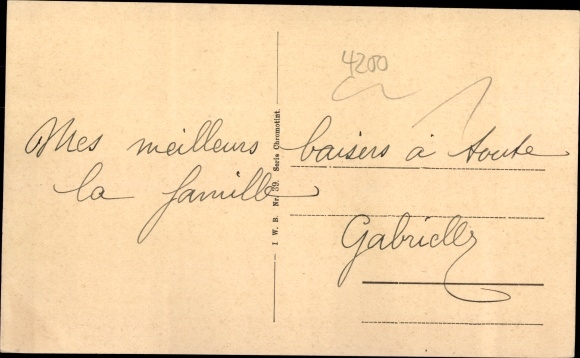 4200
Mes meilleurs baisers à toute
la famille
Gabrielle
I. W. B. Nr. 39. Serie Chromotint.